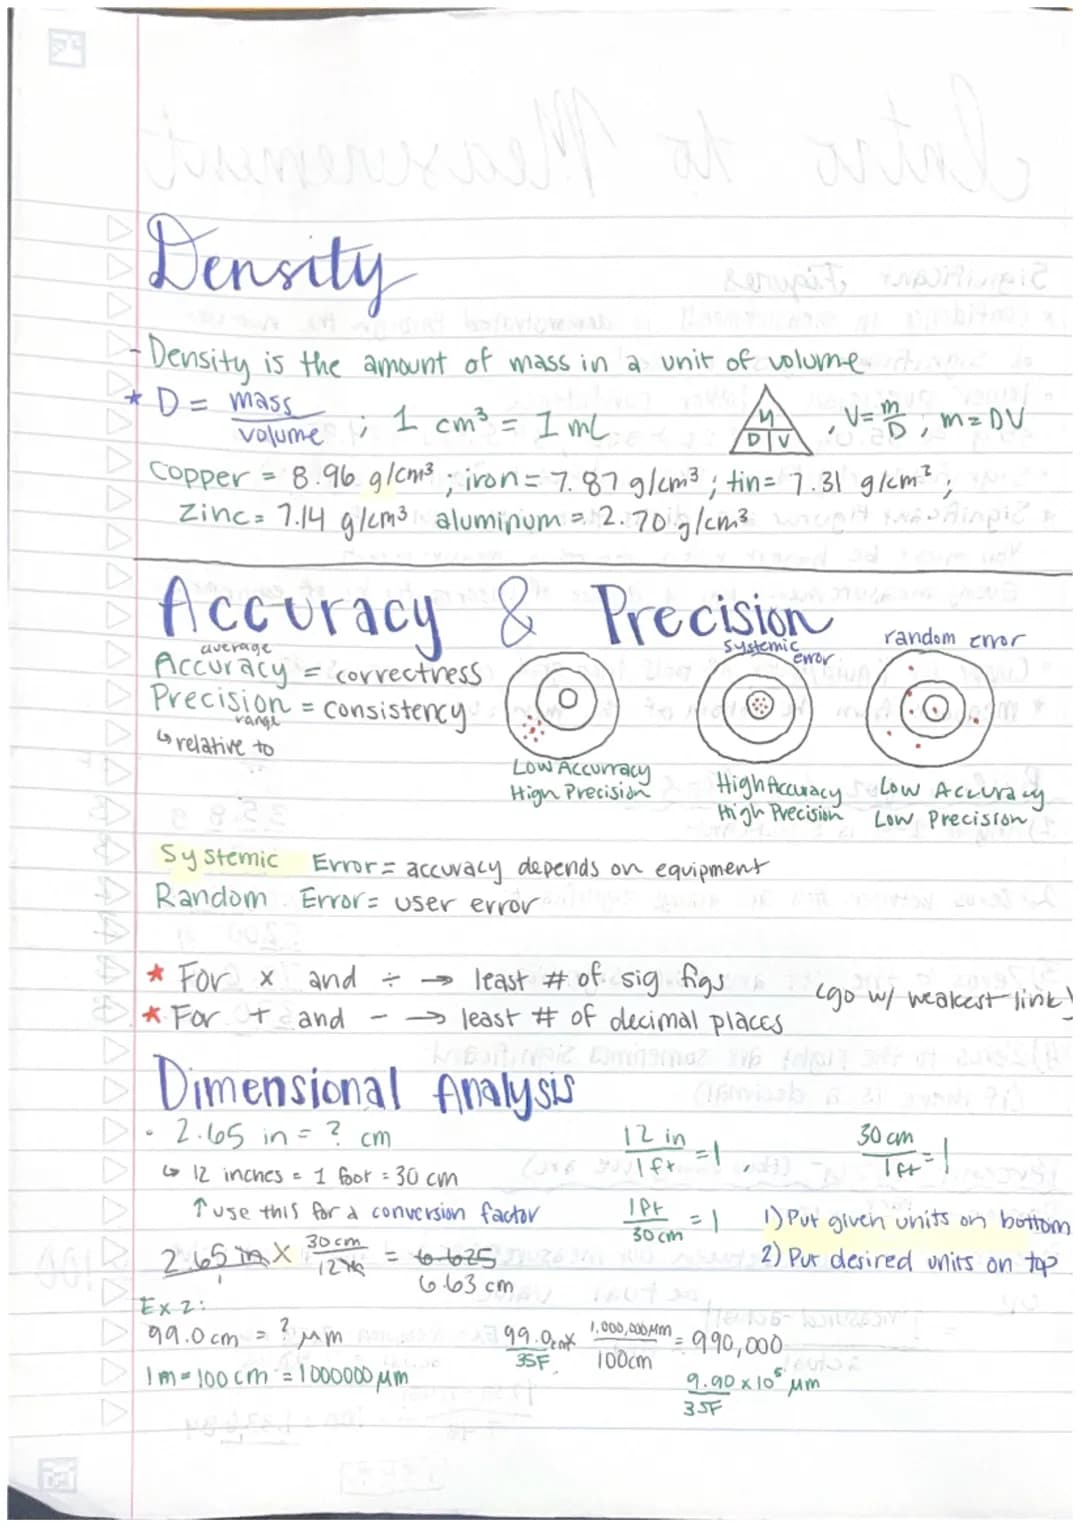 Density
- Density is the amount of mass in a unit of volume
* D = mass/volume ; 1 cm³ = 1 mL M D V , V = m/D ; m = DV
Copper = 8.96 g/cm³ ; iron = 7.87 g/cm³ ; tin = 7.31 g/cm³ ;
Zinc = 7.14 g/cm³ aluminum = 2.70 g/cm³
Accuracy & Precision
average
Accuracy = correctness
Precision = consistency
range
↳ relative to
Low Accurracy
High Precision
systemic error
High Accuracy
High Precision
random error
Low Accuracy
Low Precision
Systemic Error = accuracy depends on equipment
Random Error = user error
* For x and ÷ → least # of sig figs (go w/ weakest link)
* For + and - → least # of decimal places
Dimensional Analysis
· 2.65 in = ? cm 12 in/1 ft = 1, 30 cm/1 ft = 1
↳ 12 inches = 1 foot = 30 cm
↑ use this for a conversion factor 1 ft/30 cm = 1 1) Put given units on bottom
2.65 in x 30 cm/12 in = 6.625 2) Put desired units on top
6.63 cm
Ex 2:
99.0 cm = ? μm 99.0 cm x 1,000,000 μm/100 cm = 990,000
3SF
1 m = 100 cm = 1000000 μm 9.90 x 10⁵ μm
3SF